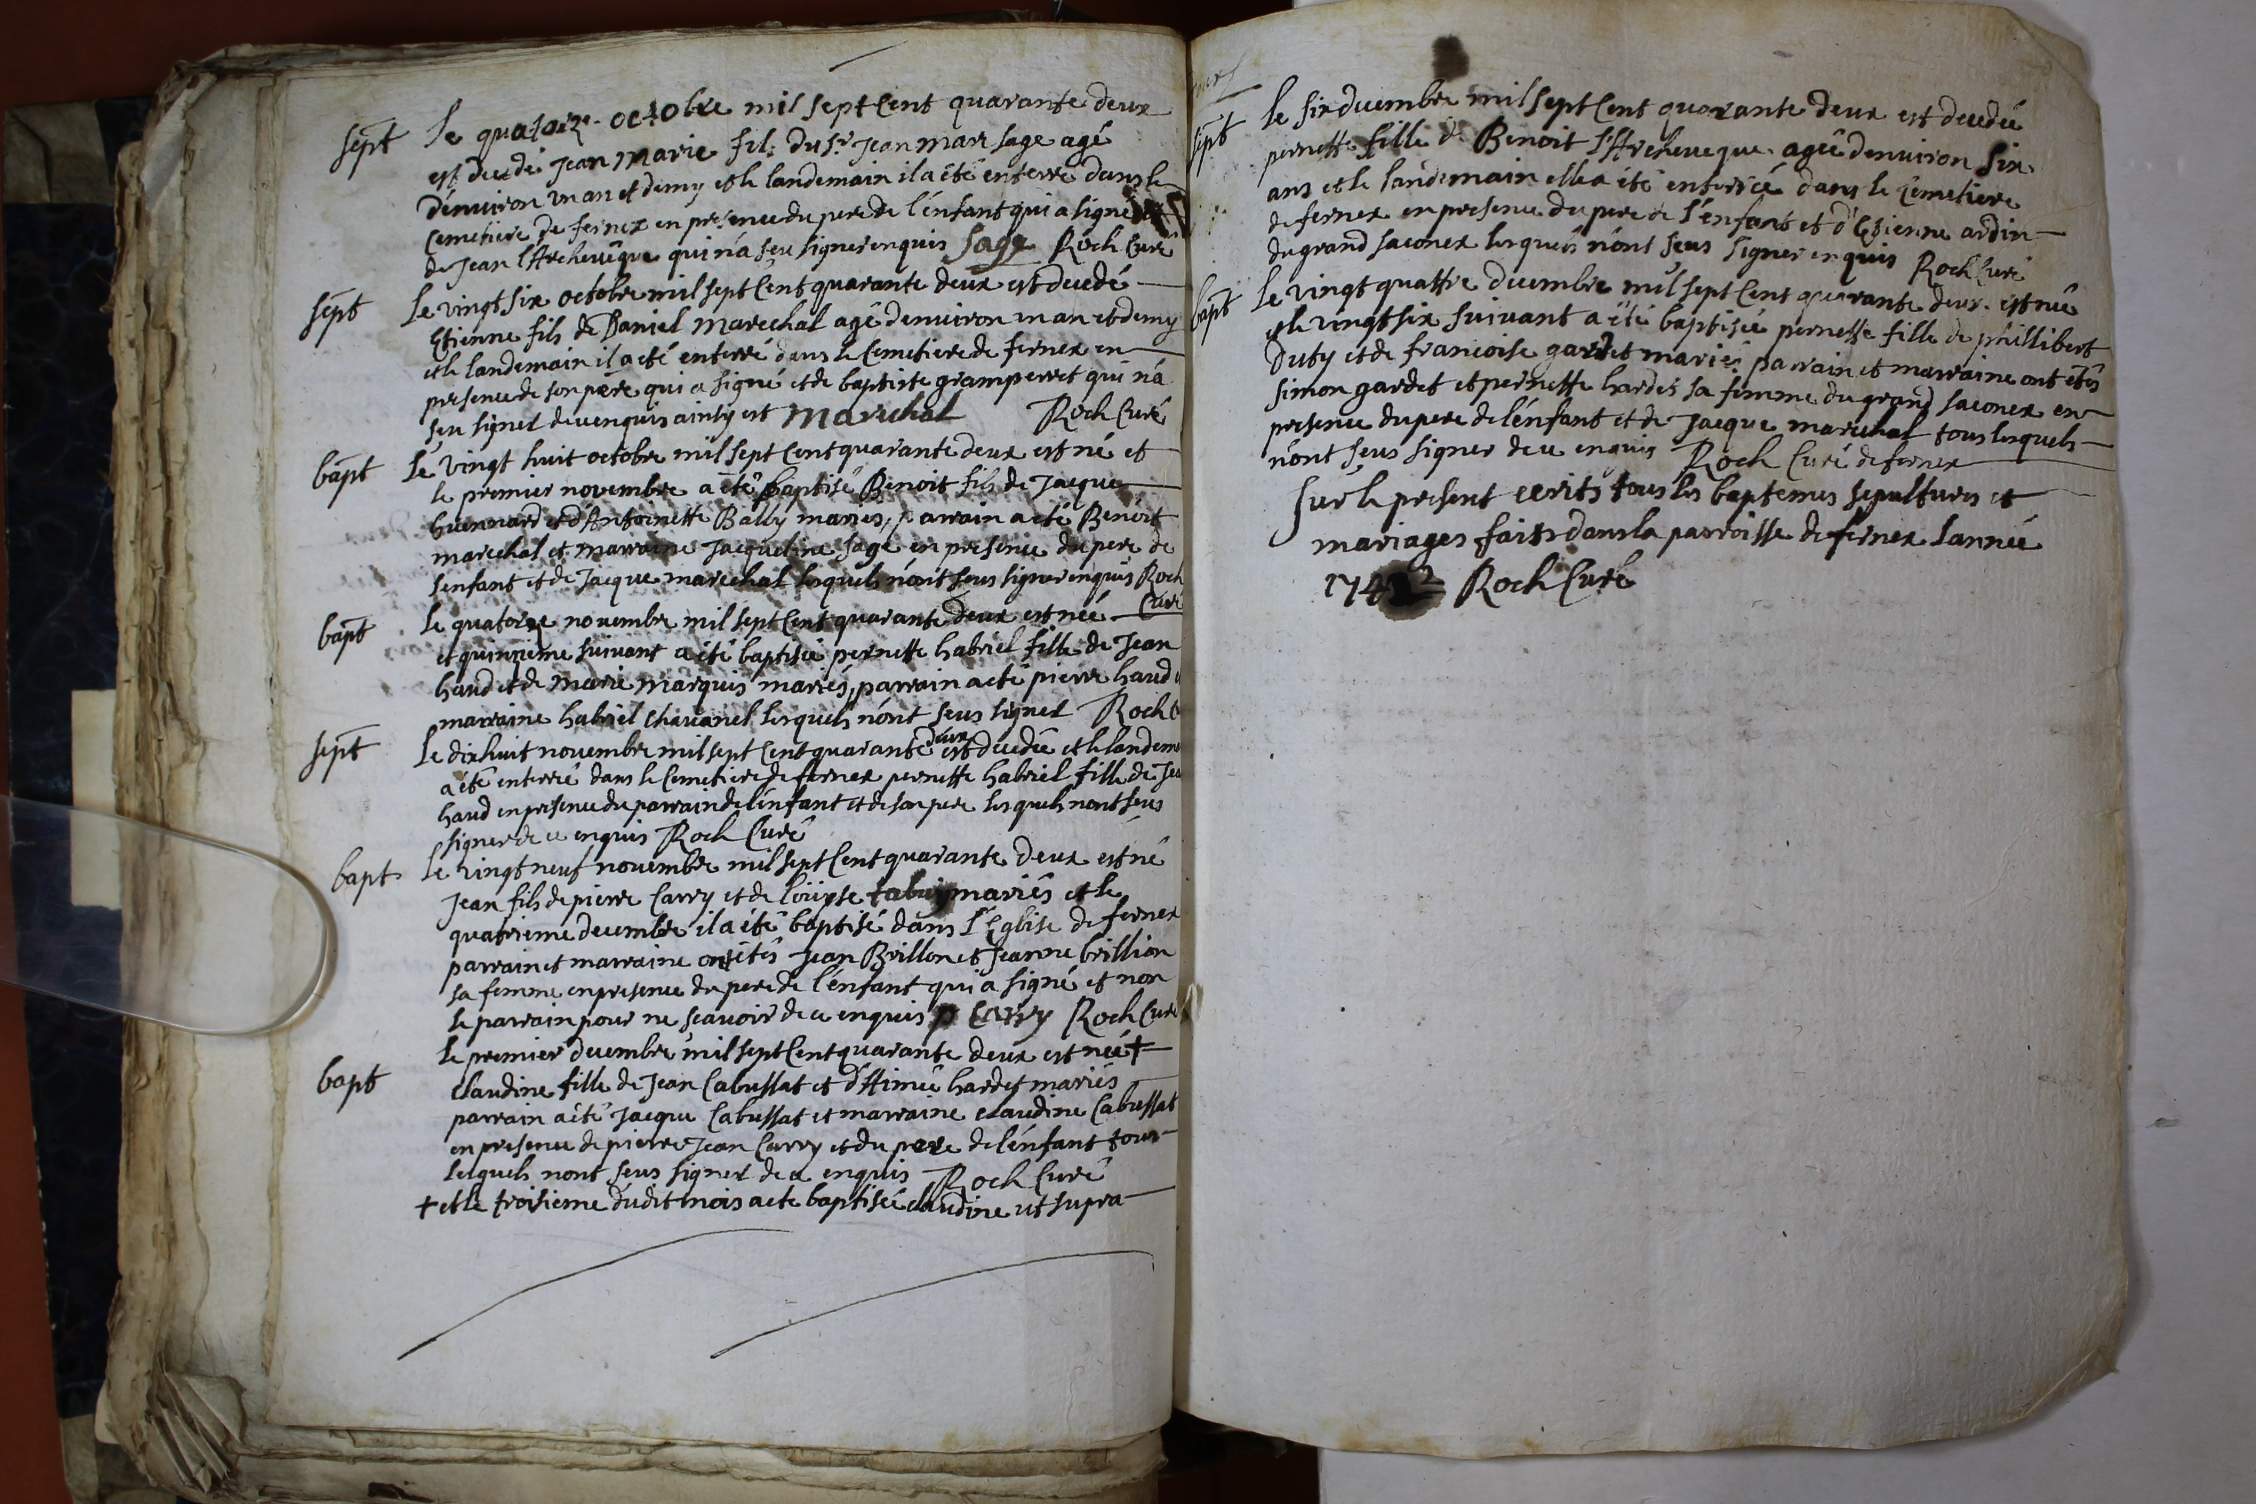 sept
le quatorze octobre mil sept Cent quarante deux
est decedé Jean Marie fils du sr Jean marc sage agé
denuiron un an et demy et le landemain il a été enterré dans le
Cemetiere de fernex en presence du pere de l'énfant qui a signé et
de Jean l'Archeuêque qui n'a seu signer enquis Sage Roch Curé
sept
le vingt six octobre mil sept Cent quarante deux est decedé
Etienne fils de Daniel Marechal agé denuiron un an et demy
et le landemain il a été enterré dans le Cemetiere de fernex en
presence de son pere qui a signé et de baptiste gramperret qui n'a
seu signer de ce enquis ainsy est Marechal Roch Curé
bapt
le vingt huit octobre mil sept Cent quarante deux est né et
le premier novembre a été baptisé Benoit fils de Jacque
huennard et d'Antoinette Bally mariés, parrain a été Benoit
marechal et marraine Jacqueline sage en presence du pere de
l'enfant et de Jacque marechal lesquels n'ont seus signer enquis Roch
Curé
bapt
le quatorze novembre mil sept Cent quarante deux est née
et quinzieme suivant a été baptisée pernette habriel fille de Jean
haud et de marie marquis mariés, parrain a été pierre haud
marraine habriel chavanel lesquels n'ont seus signer Roch
sept
le dix huit novembre mil sept Cent quarante deux est decedée et le landem
a été enterrée dans le Cemetiere de fernex pernette habriel fille de Jea
haud en presence du parrain de l'énfant et de son pere lesquels n'ont seus
signer de ce enquis Roch Curé
bapt
le vingt neuf novembre mil sept Cent quarante deux est né
Jean fils de pierre Carry et de loüyse mariés et le
quatrieme decembre il a été baptisé dans l'Eglise de fernex
parrain et marraine ont étés Jean Brillon et Jeanne brillion
sa femme en presence du pere de l'énfant qui a signé et non
le parrain pour ne scavoir de ce enquis p Carry Roch Curé
bapt
le premier decembre mil sept Cent quarante deux est née +
claudine fille de Jean Cabussat et d'Aimée hardet mariés
parrain a été Jacque Cabussat et marraine claudine Cabussat
en presence de pierre Jean Carry et du pere de l'énfant tous
lesquels n'ont seus signer de ce enquis Roch Curé
+ et le troisieme dudit mois a eté baptisée claudine ut supra
sept
le six decembre mil sept Cent quarante deux est decedée
pernette fille de Benoit l'Archeueque agée denuiron six
ans et le landemain elle a été enterrée dans le cemetiere
de fernex en presence du pere de l'énfant et d'Etienne ardin
du grand saconex lesquels n'ont seus signer enquis Roch Curé
bapt
le vingt quattre decembre mil sept Cent quarante deux est née
et le vingt six suivant a été baptisée pernette fille de phillibert
Duty et de francoise gardet mariés parrain et marraine ont étés
simon gardet et pernette hardet sa femme du grand saconex en
presence du pere de l'énfant et de Jacque marechal tous lesquels
n'ont seus signer de ce enquis Roch Curé de fernex
sur le present ecrits tous les baptemes sepultures et
mariages faits dans la parroisse de fernex l'année
1742 Roch Curé